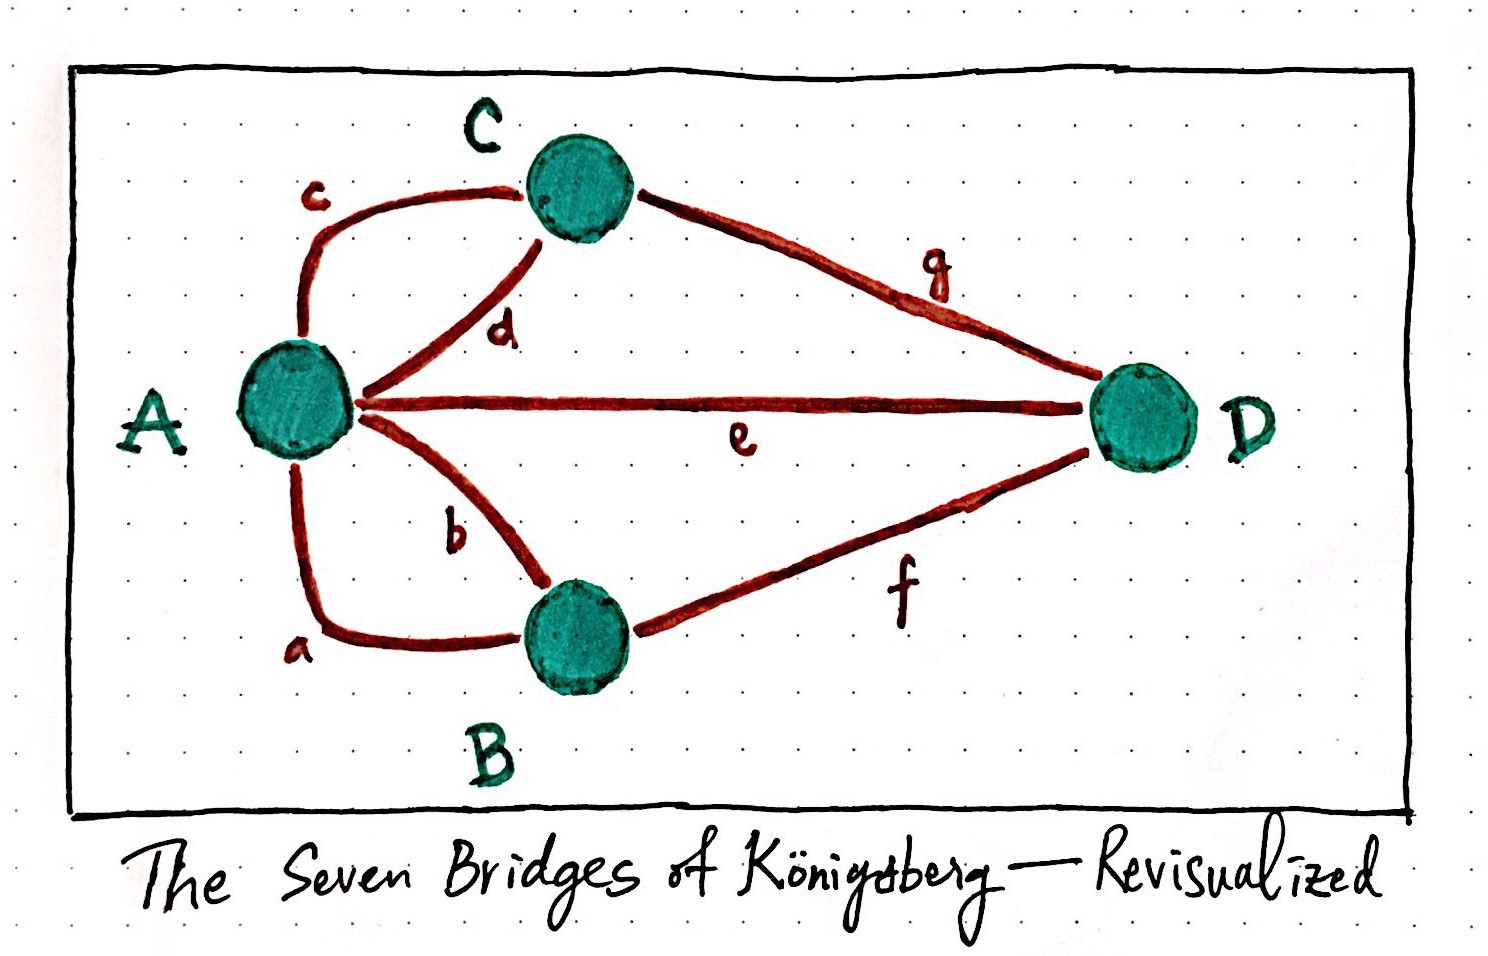 C
c
g
d
A
D
e
b
f
a
B
The Seven Bridges of Königsberg — Revisualized